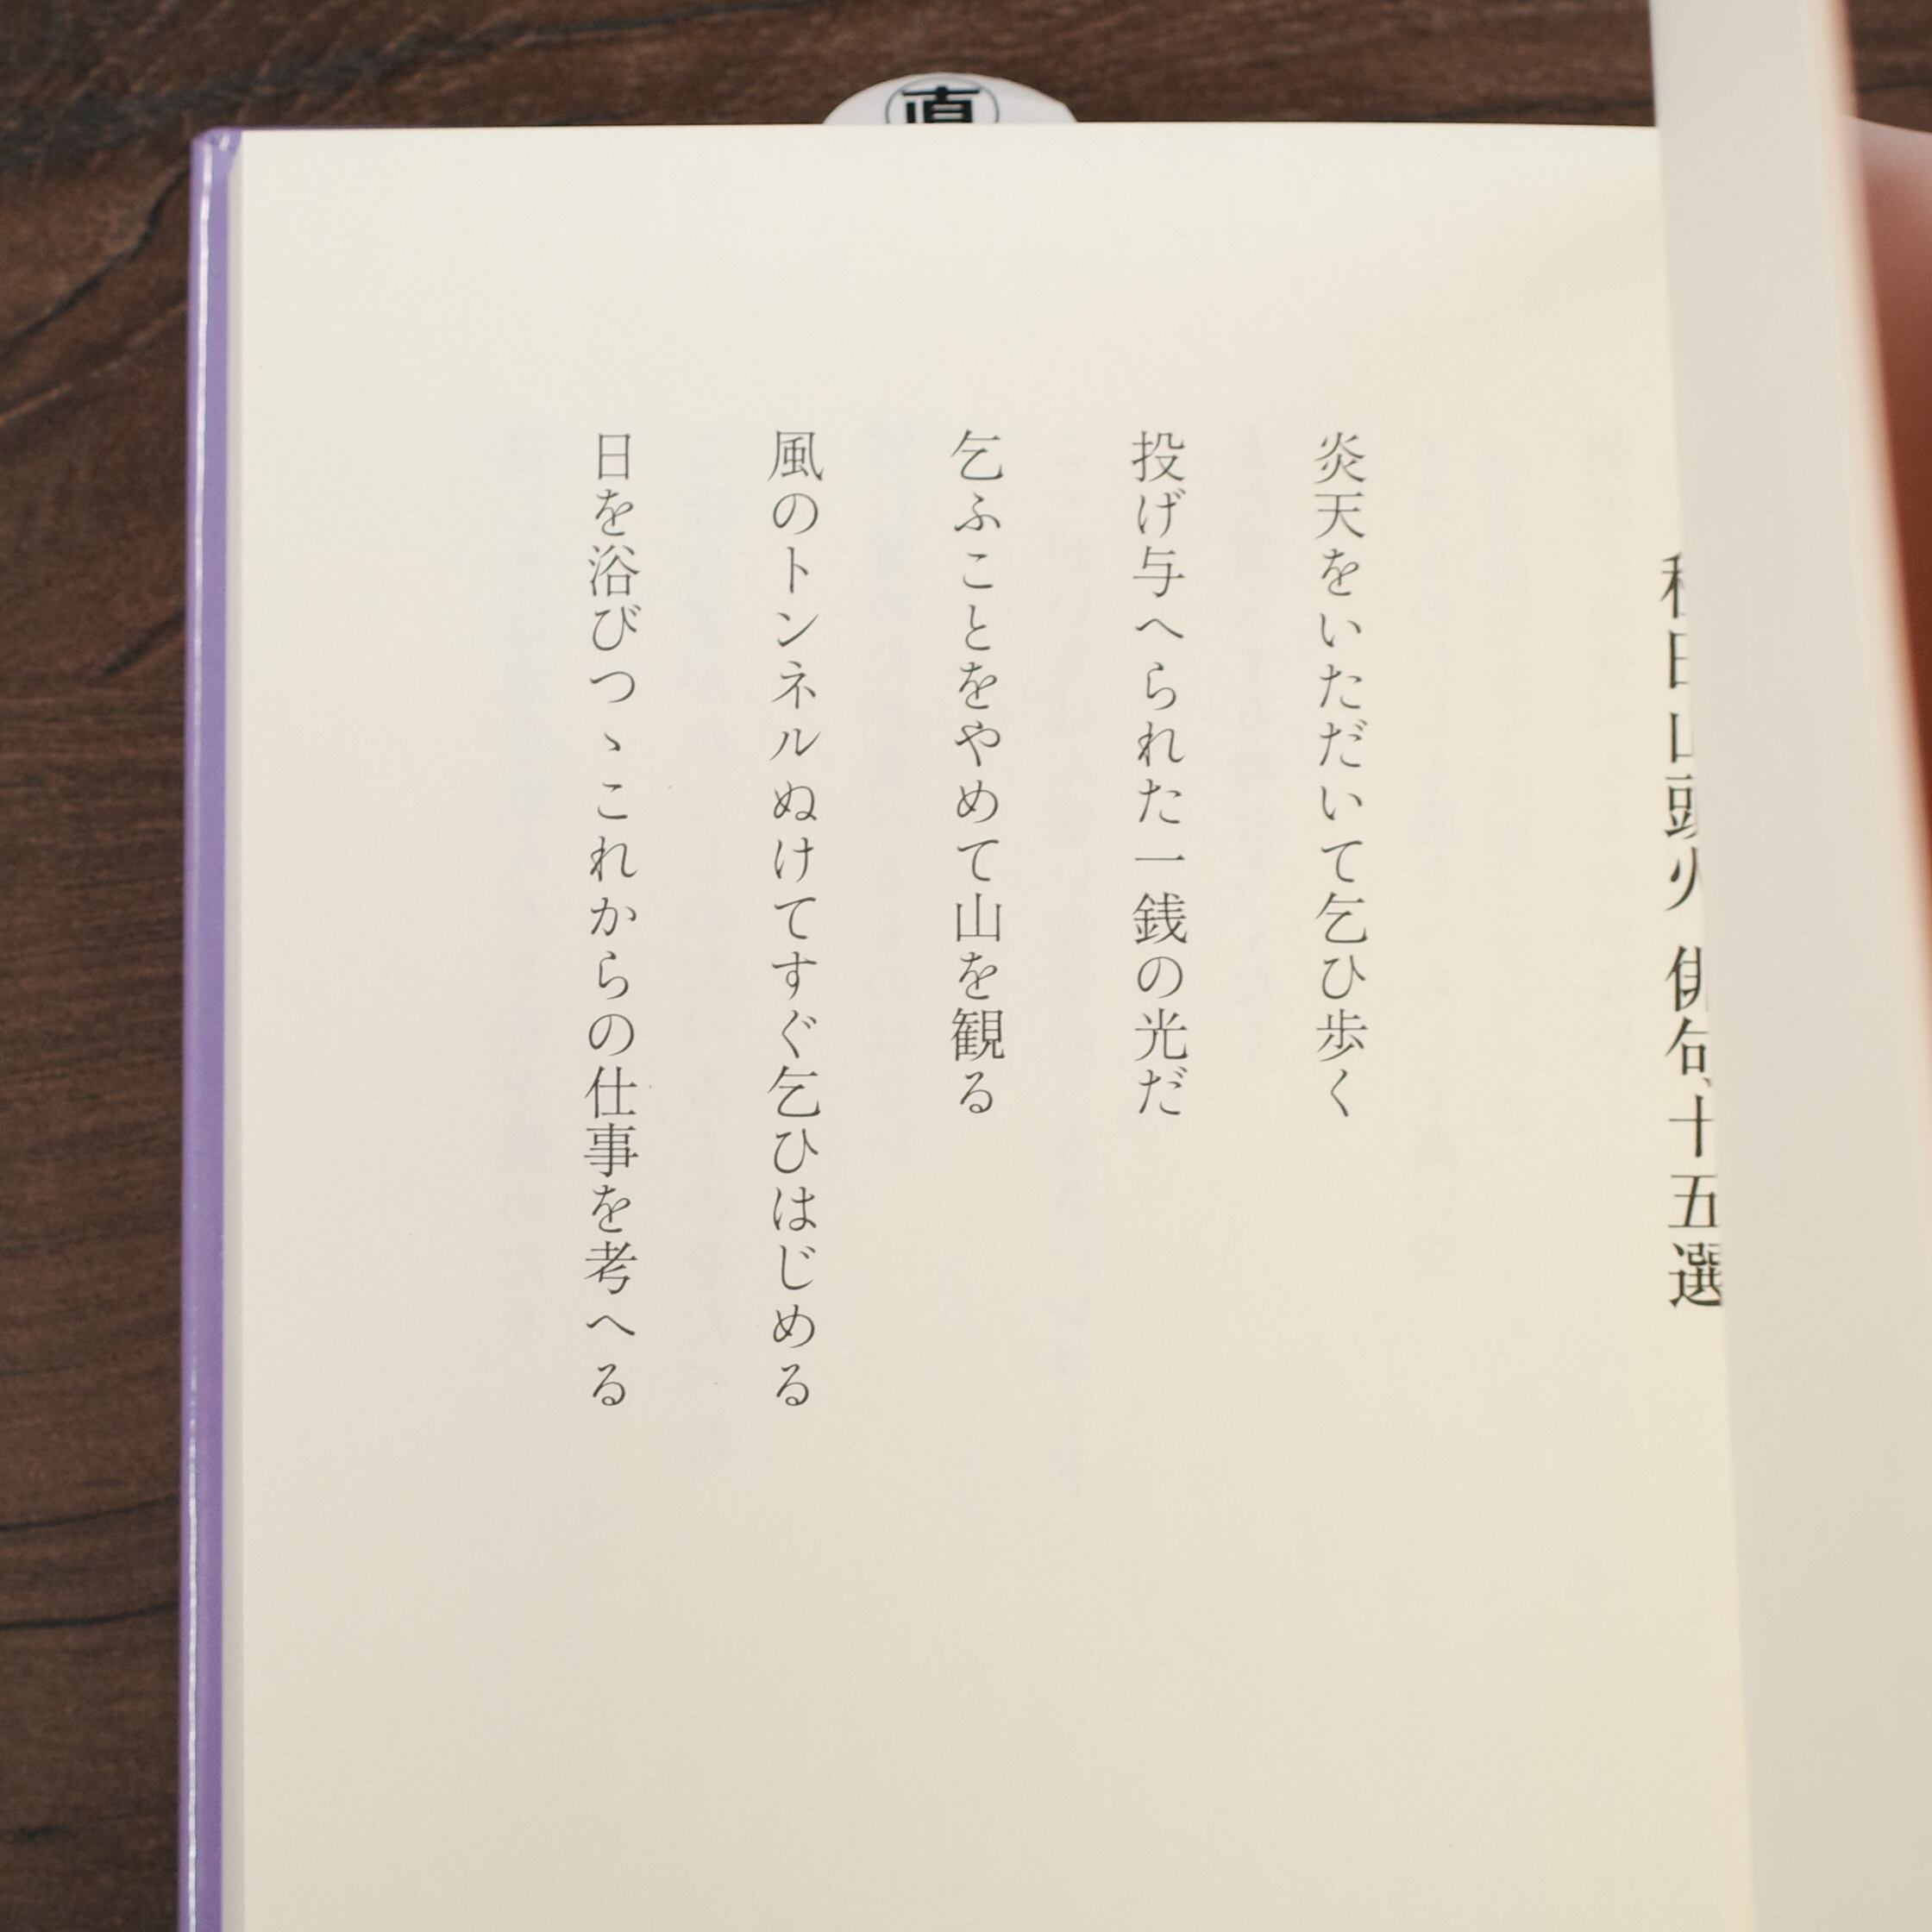 種田山頭火 俳句十五選
炎天をいただいて乞ひ歩く
投げ与へられた一銭の光だ
乞ふことをやめて山を観る
風のトンネルぬけてすぐ乞ひはじめる
日を浴びつゝこれからの仕事を考へる
直